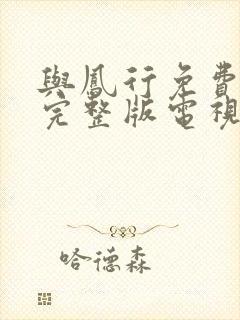 與鳳行免費
完整版電視
哈德森